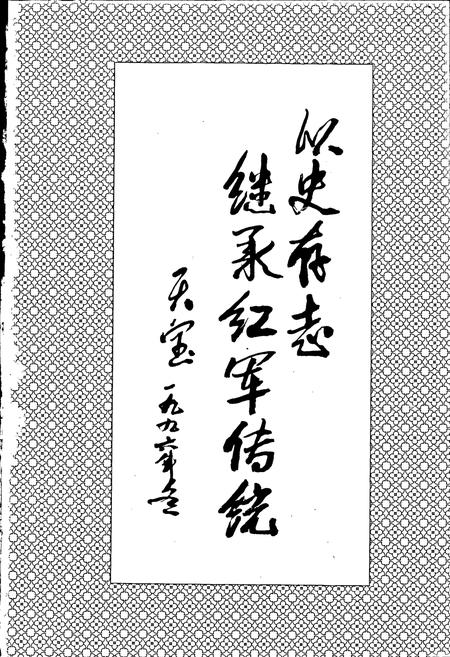 以史存志
继承红军传统
天宝
一九九六年